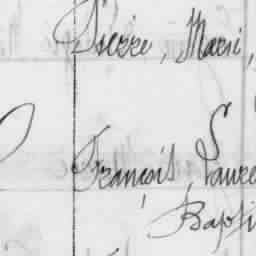 Pierre, Marie,
François, Laure
Bapti